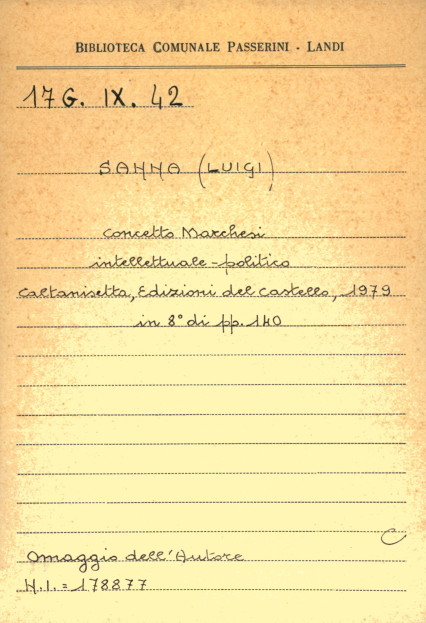 BIBLIOTECA COMUNALE PASSERINI - LANDI
17 G. IX. 42
SANNA (LUIGI)
Concetto Marchesi
intellettuale-politico
Caltanisetta, Edizioni del Castello, 1979
in 8° di pp. 140
C
Omaggio dell'Autore
N.I. = 178877